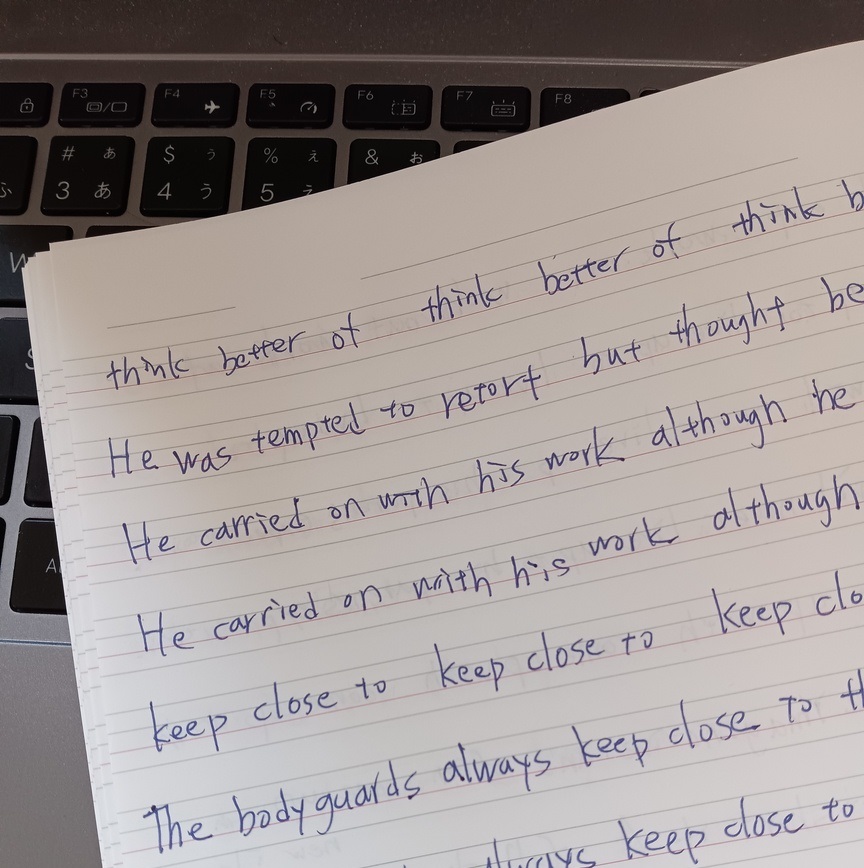 F3 F4 F5 F6 F7 F8
# あ $ う % え & お
3 あ 4 う 5
W
think better of think better of think
He was tempted to retort but thought
He carried on with his work although he
He carried on with his work although
keep close to keep close to keep
The bodyguards always keep close to
always keep close to